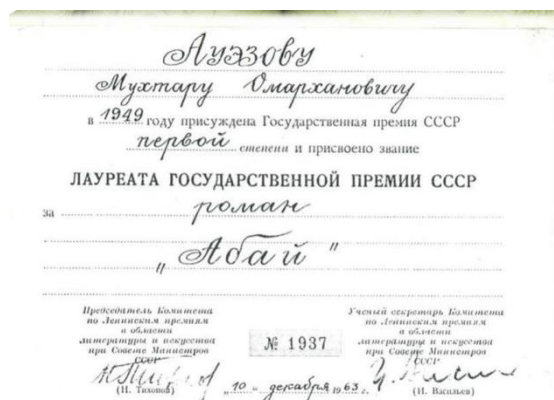 Ауэзову
Мухтару Омархановичу
в 1949 году присуждена Государственная премия СССР
первой степени и присвоено звание
ЛАУРЕАТА ГОСУДАРСТВЕННОЙ ПРЕМИИ СССР
за роман
„Абай"
Председатель Комитета
по Ленинским премиям
в области
литературы и искусства
при Совете Министров
СССР
(Н. Тихонов)
№ 1937
„10" декабря 1963 г.
Ученый секретарь Комитета
по Ленинским премиям
в области
литературы и искусства
при Совете Министров
СССР
(И. Васильев)